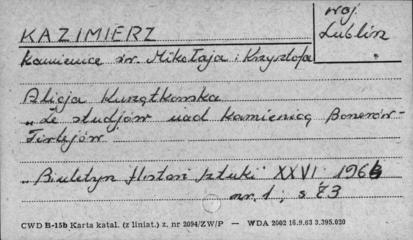 KAZIMIERZ
woj
Lublin
Kamienice św. Mikołaja i Krzysztofa
Alicja Kurzątkowska
"Ze studjów nad kamienicą Bonerów-
Firlejów
"Biuletyn Histori Sztuki" XXVI 1966
nr. 1, s 23
CWD B-15b Karta katal. (z liniat.) z. nr 2094/ZW/P — WDA 2002 16.9.63 3.395.020